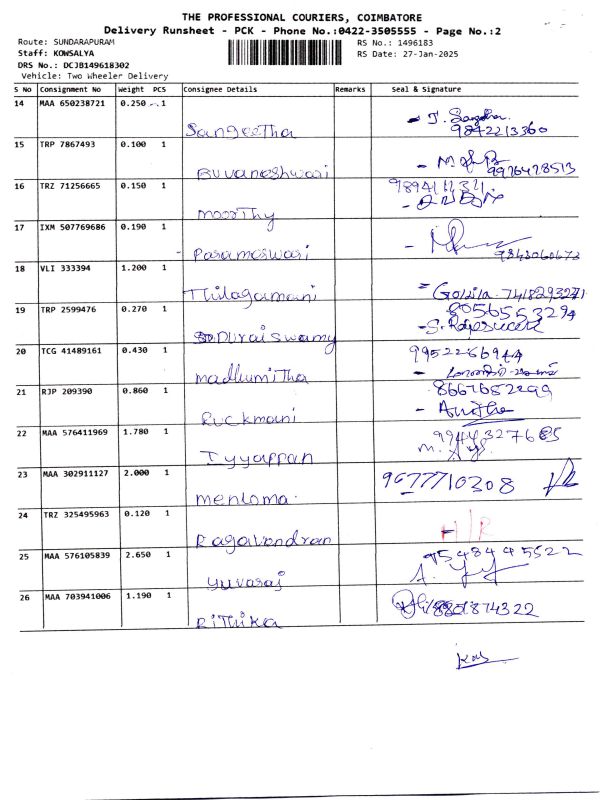 THE PROFESSIONAL COURIERS, COIMBATORE
Delivery Runsheet - PCK - Phone No.:0422-3505555 - Page No.:2
Route: SUNDARAPURAM
RS No.: 1496183
Staff: KOWSALYA
RS Date: 27-Jan-2025
DRS No.: DCJB149618302
Vehicle: Two Wheeler Delivery
S No Consignment No Weight PCS Consignee Details Remarks Seal & Signature
14 MAA 650238721 0.250 1
Sangeetha
9842213360
15 TRP 7867493 0.100 1
Buvaneshwari
9976478513
16 TRZ 71256665 0.150 1
moorthy
17 IXM 507769686 0.190 1
Parameswari
9843060672
18 VLI 333394 1.200 1
Thilagamani
7418293271
19 TRP 2599476 0.270 1
Duraiswamy
8056553294
20 TCG 41489161 0.430 1
madhumitha
9952266944
21 RJP 209390 0.860 1
Ruckmani
8667652299
22 MAA 576411969 1.780 1
Iyyappan
23 MAA 302911127 2.000 1
menloma
9677710308
24 TRZ 325495963 0.120 1
Ragavendran
25 MAA 576105839 2.650 1
yuvaraj
9548445522
26 MAA 703941006 1.190 1
Rithika